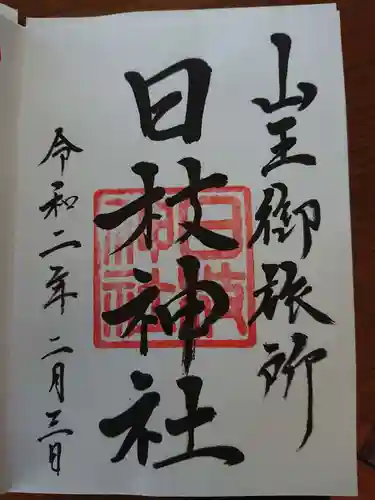 山王御旅所
日枝神社
日枝
神社
令和二年二月三日